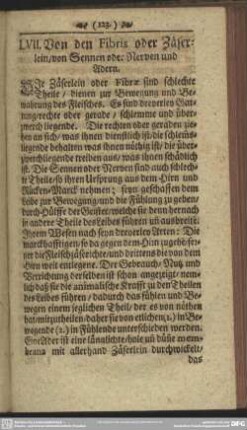 (123)
LVII. Von den Fibris oder Zäser-
lein/von Sennen oder Nerven und
Adern.
Die Zäserlein oder Fibræ sind schlechte
Theile/ dienen zur Bewegung und Be-
wahrung des Fleisches. Es sind dreyerley Gat-
tung/rechte oder gerade/ schlemme und über-
zwerch liegende. Die rechten oder geraden zie-
hen an sich/was ihnen dienstlich ist/die schlems-
liegende behalten was ihnen nützig ist/ die über-
zwerchliegende treiben aus/ was ihnen schädlich
ist. Die Sennen oder Nerven sind auch schlech-
te Theile/so ihren Ursprung aus dem Hirn und
Rücken-Marck nehmen; seyn geschaffen dem
Leibe zur Bewegung/und die Fühlung zu geben/
durch Hülffe der Geister/welche sie denn hernach
in andere Theile des Leibes führen uñ ausbreite.
Ihrem Wesen nach seyn dreyerley Arten: Die
marckhafftigen/so da gegen dem Hirn zugehē/fer-
ner die Fleischzäserichte/und drittens die von dem
Hirn weit entlegene. Der Gebrauch/Nutz und
Verrichtung derselben ist schon angezeigt/nem-
lich daß sie die animalische Krafft zu den Theilen
des Leibes führen/ dadurch das fühlen und Be-
wegen einem jeglichen Theil/ der es von nöthen
hat/mitzutheilen/daher sie von etlichen (1.) in Be-
wegende (2.) in Fühlende unterschieden werden.
ist eine länglichte/hole uñ dünne mem-
brana mit allerhand Zäserlein durchwickelt/
das